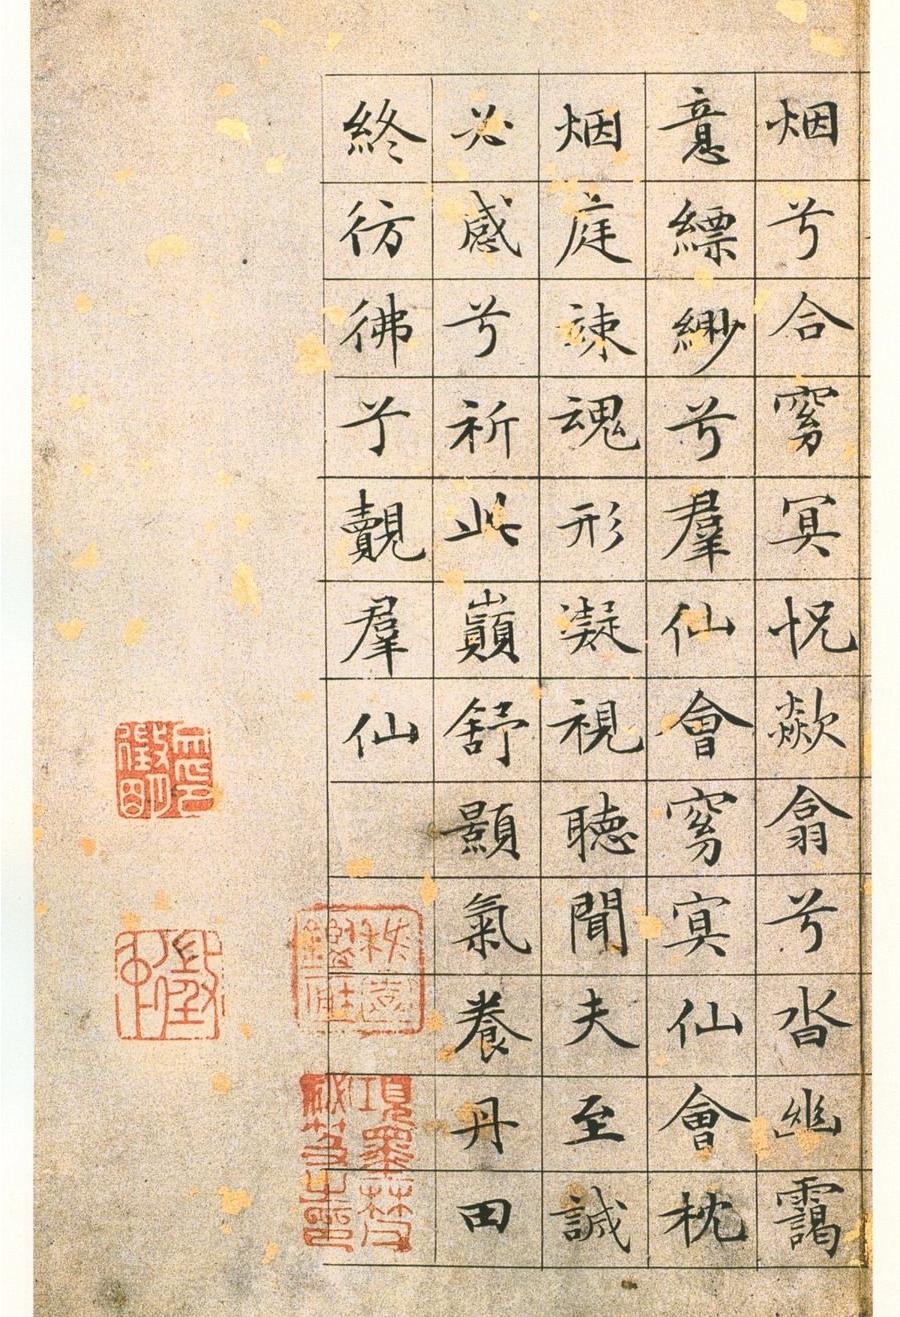 烟兮合窈冥怳欻翕兮沓幽靄
意縹緲兮羣仙會窈冥仙會枕
烟庭竦魂形凝視聽聞夫至誠
必感兮祈此巔舒顥氣養丹田
終彷彿兮覿羣仙
項墨林父
秘笈之印